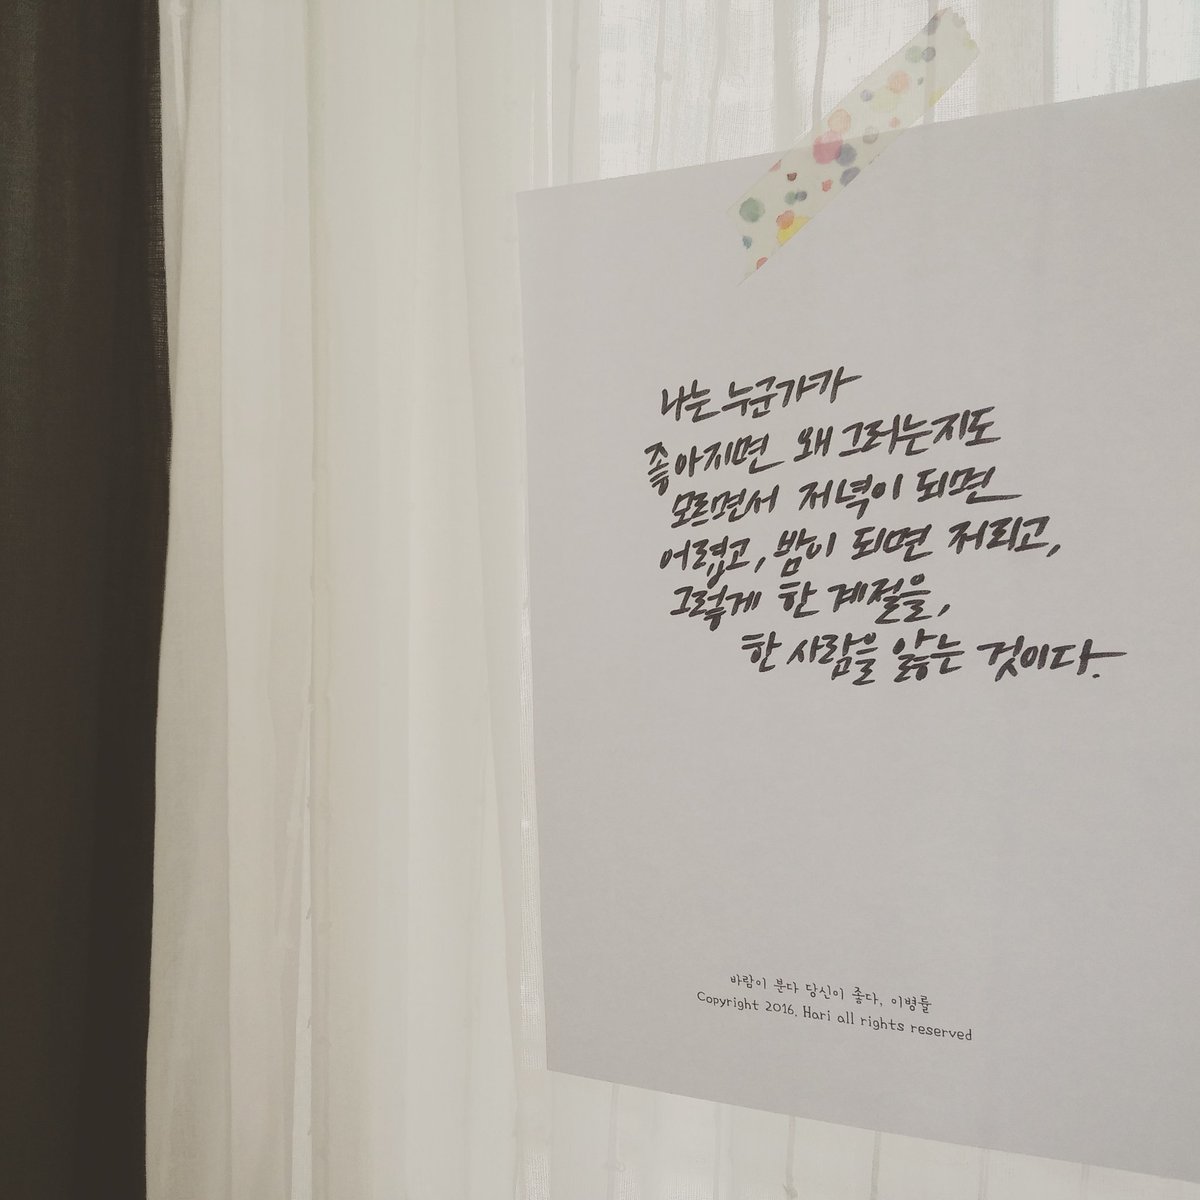 나는 누군가가
좋아지면 왜 그러는지도
모르면서 저녁이 되면
어렵고, 밤이 되면 저리고,
그렇게 한 계절을,
한 사람을 앓는 것이다.
바람이 분다 당신이 좋다, 이병률
Copyright 2016. Hari all rights reserved